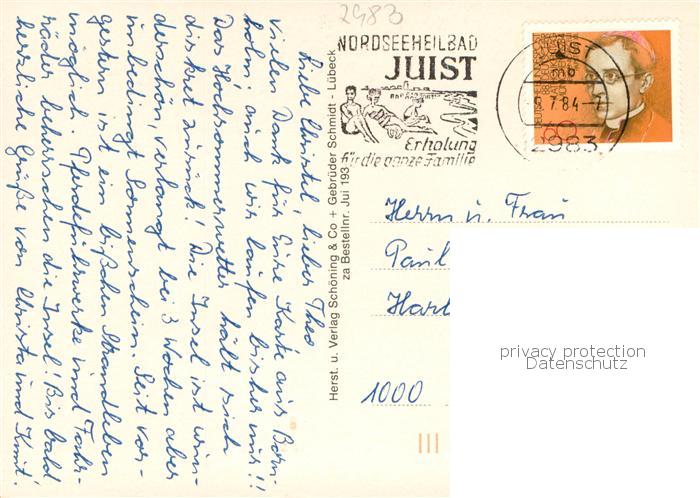 2983
NORDSEEHEILBAD
JUIST
Erholung
für die ganze Familie
JUIST
mb
-6.7.84-7
2983
80
Liebe Christel, lieber Theo
Vielen Dank für Eure Karte aus Born-
holm, auch wir laufen bisher nur!!
Das Hochsommerwetter hält sich
diskret zurück! Die Insel ist wun-
derschön, verlangt bei 3 Wochen aber
unbedingt Sonnenschein. Seit vor-
gestern ist ein bißchen Strandleben
möglich. Pferdefuhrwerke und Fahr-
räder beherrschen die Insel! Bis bald
herzliche Grüße von Christa und Knut.
Herst. u. Verlag Schöning & Co + Gebrüder Schmidt - Lübeck
za Bestellnr. Jui 193
Herrn u. Frau
Paul
Hart
1000
privacy protection
Datenschutz